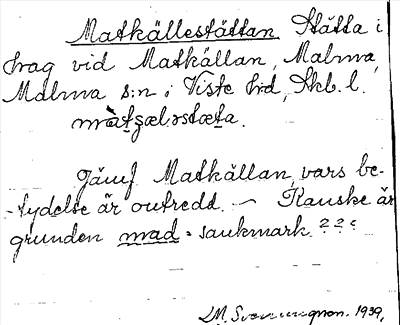 Matkällestättan Stätta i
hag vid Matkällan, Malma,
Malma s:n i Viste hd, Skb. l.
màtʂæləstæta.
Jämf Matkällan, vars be-
-tydelse är outredd. - Kanske är
grunden mad = sankmark???
M. Svenungson. 1939,